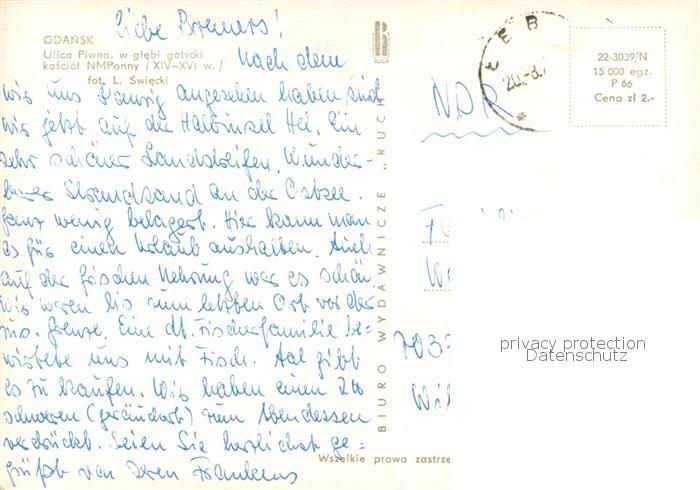 GDAŃSK
Ulica Piwna, w głębi gotycki
kościół NMPanny /XIV–XVI w./
fot. L. Święcki
Liebe Bremers!
Nach dem
wir uns Danzig angesehen haben, sind
wir jetzt auf der Halbinsel Hel. Ein
sehr schöner Landstreifen. Wunder-
barer Strandsand an der Ostsee.
Ganz wenig belagert. Hier kann man
es für einen Urlaub aushalten. Auch
auf der frischen Nehrung war es schön
wir waren bis zum letzten Ort vor der
rus. Grenze. Eine dt. Fischerfamilie be-
wirtete uns mit Fisch. Aal gibt
es zu kaufen. Wir haben einen
schweren (geräuchert) zum Abendessen
verdrückt. Seien Sie herzlichst ge-
grüßt von Ihren Frankens
BIURO WYDAWNICZE „RUCH"
RUCH
Wszelkie prawa zastrze
ŁEB
20.-8.
22-3039/N
15 000 egz.
P 66
Cena zł 2.-
NDR
703
privacy protection
Datenschutz